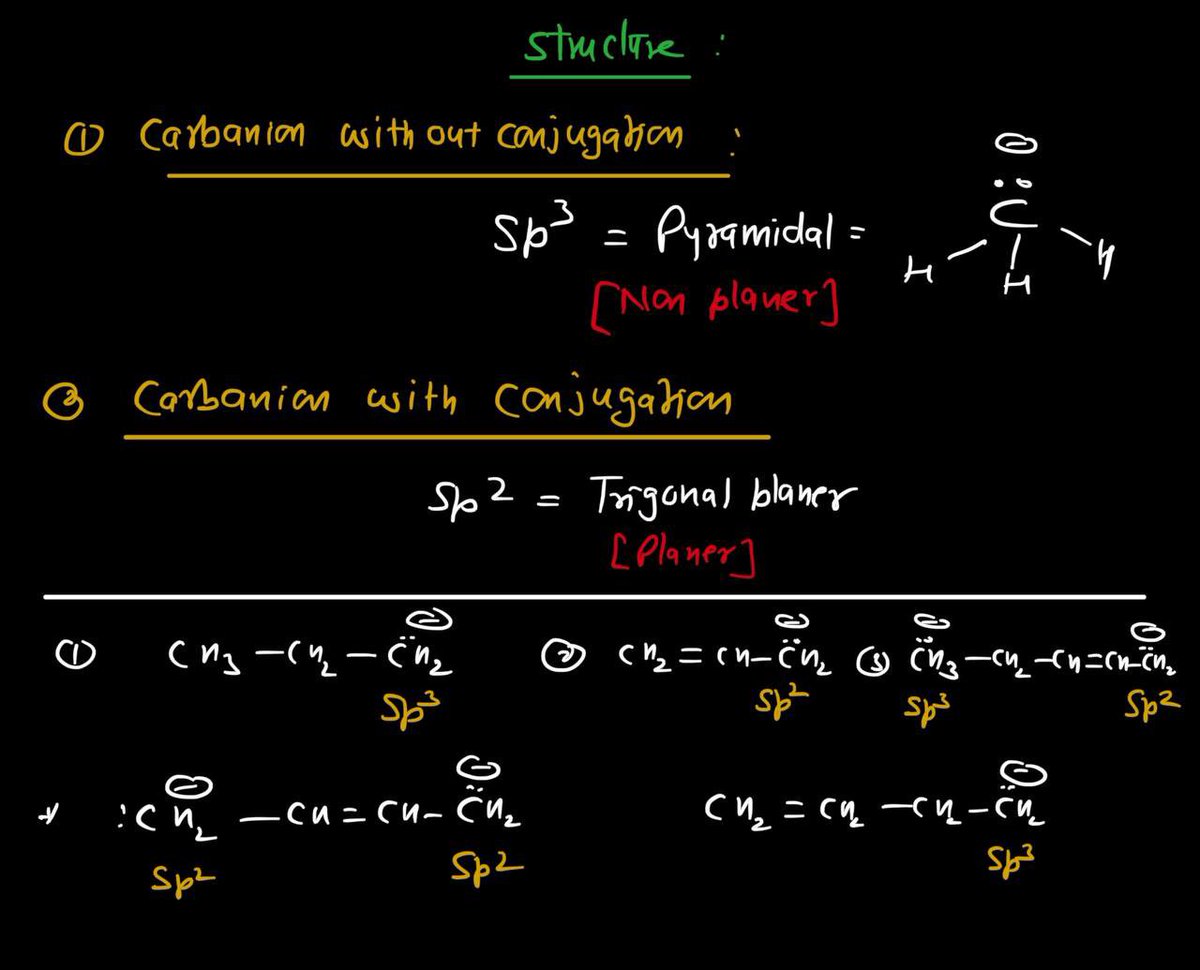 Structure :
① Carbanion with out conjugation :
Sp³ = Pyramidal =
[Non planer]
⊖
C̈
H H H
② Carbanion with conjugation
Sp² = Trigonal planer
[Planer]
① CH₃ – CH₂ – C̈H₂⊖ ② CH₂ = CH – C̈H₂⊖ ③ C̈H₃⊖ – CH₂ – CH = CH – C̈H₂⊖
Sp³ Sp² Sp³ Sp²
:CH₂⊖ – CH = CH – C̈H₂⊖ CH₂ = CH₂ – CH₂ – C̈H₂⊖
Sp² Sp² Sp³